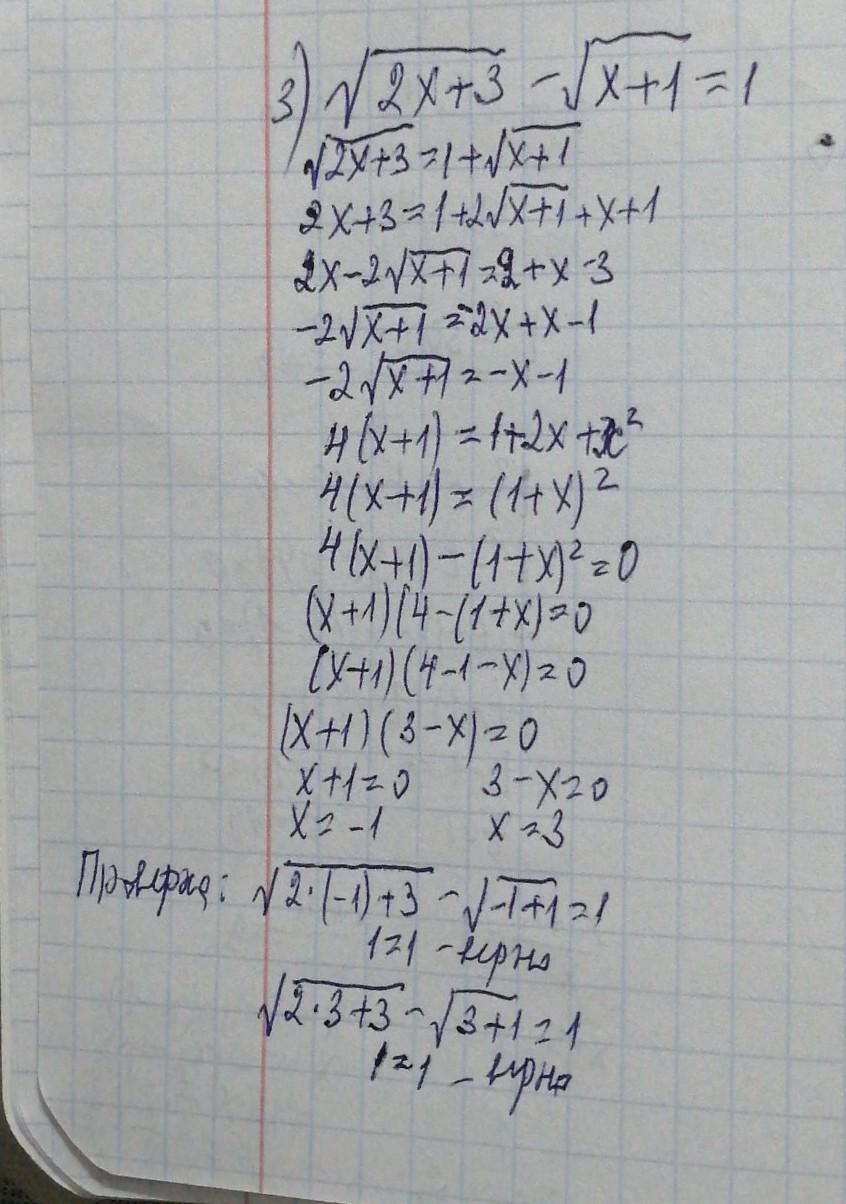 3) √(2x+3) - √(x+1) = 1
√(2x+3) = 1+√(x+1)
2x+3 = 1+2√(x+1) + x+1
2x-2√(x+1) = 2+x-3
-2√(x+1) = -2x+x-1
-2√(x+1) = -x-1
4(x+1) = 1+2x+x²
4(x+1) = (1+x)²
4(x+1) - (1+x)² = 0
(x+1)(4-(1+x)=0
(x+1)(4-1-x)=0
(x+1)(3-x)=0
x+1=0 3-x=0
x=-1 x=3
Проверка: √(2·(-1)+3) - √(-1+1) = 1
1=1 - верно
√(2·3+3) - √(3+1) = 1
1=1 - верно